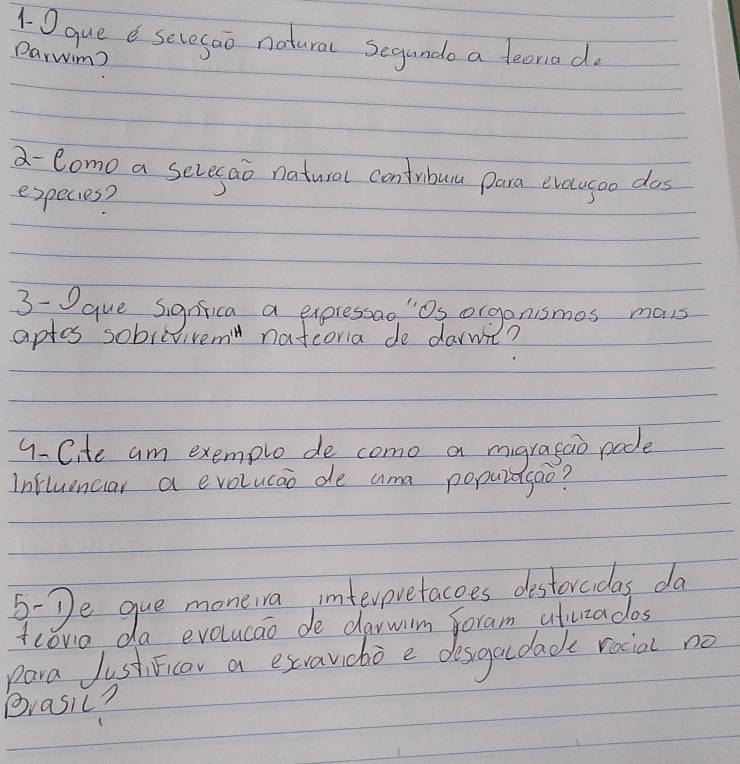 1- O que é seleção natural segundo a teoria de
Darwim?
2- Como a seleção natural contribuiu para evolução das
especies?
3- O que significa a expressão "Os organismos mais
aptos sobrevivem" na teoria de darwin?
4- Cite um exemplo de como a migração pode
influenciar a evolucão de uma população?
5- De que maneira imterpretacoes destorcidas da
teoria da evolucão de darwim foram utilizados
para Justificar a escravichõ e desigaldade racial no
Brasil?